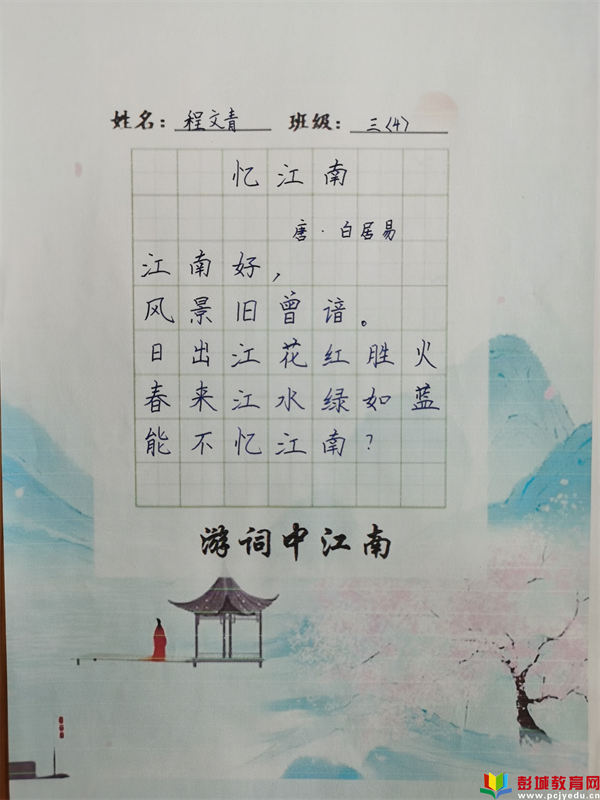 姓名：程文青 班级：三(4)
忆江南
唐·白居易
江南好，
风景旧曾谙。
日出江花红胜火
春来江水绿如蓝
能不忆江南？
游词中江南
彭城教育网
www.pcjyedu.cn